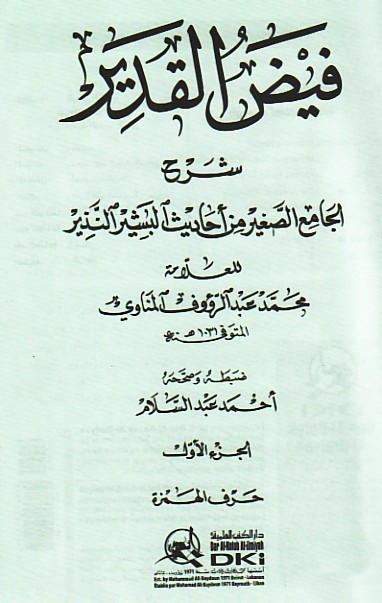 فيض القدير
شرح
الجامع الصغير من أحاديث البشير النذير
للعلامة
محمد عبد الرؤوف المناوي
المتوفى ١٠٣١ هـ
ضبطه وصححه
أحمد عبد السلام
الجزء الأول
حرف الهمزة
دار الكتب العلمية
Dar Al-Kotob Al-ilmiyah
DKi
Est. by Mohammad Ali Baydoun 1971 Beirut - Lebanon
Etablie par Mohamad Ali Baydoun 1971 Beyrouth - Liban